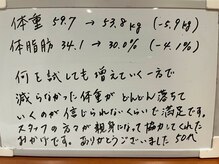 体重 59.7 → 53.8kg (-5.9kg)
体脂肪 34.1 → 30.0% (-4.1%)
何を試しても増えていく一方で
減らなかった体重がどんどん落ちて
いくのが信じられないくらいで満足です。
スタッフの方々が親身になって協力してくれた
おかげです。ありがとうございました 50代